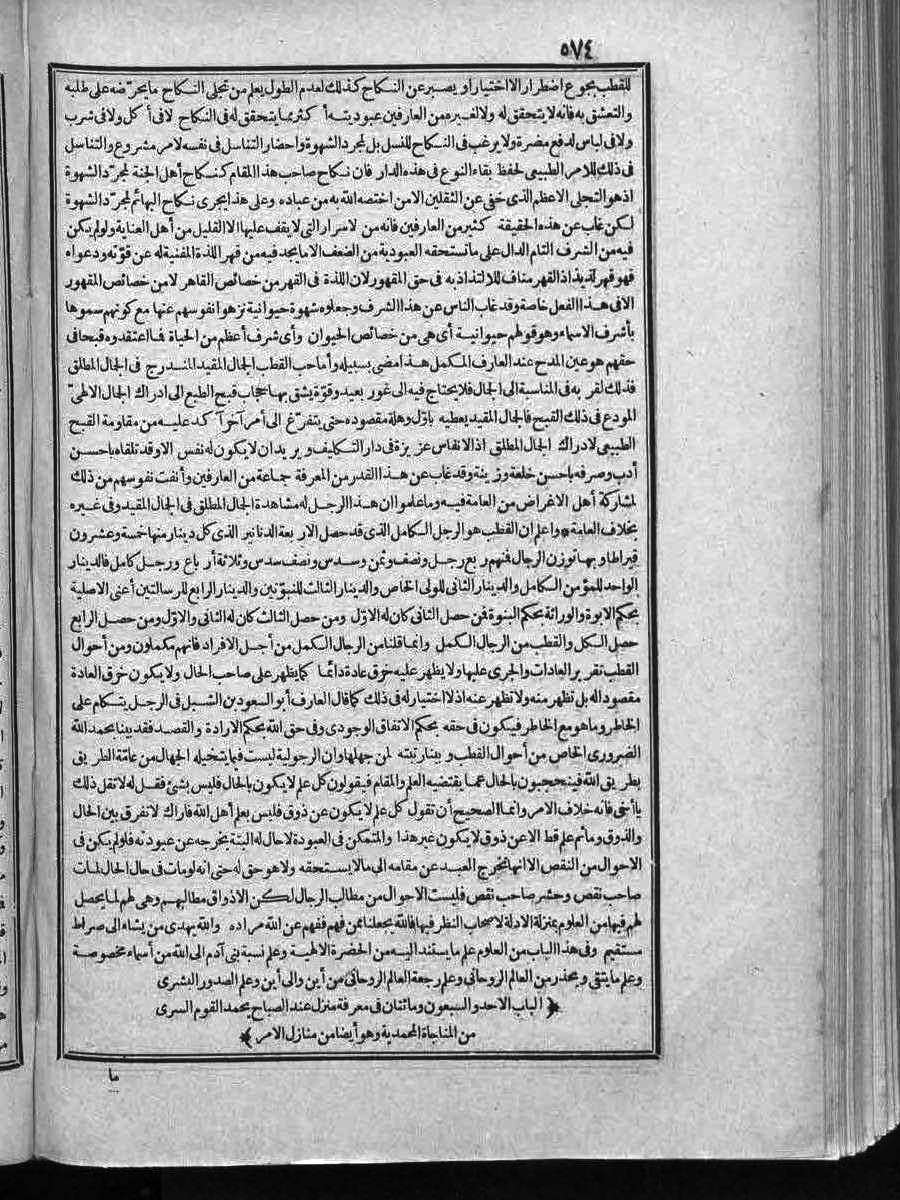 ٥٧٤
للقطب بجوع اضطرار لا اختيار أو يصبر عن النكاح كذلك لعدم الطول يعلم من تجلى النكاح ما يحرّضه على طلبه
والتعشق به فانه لا يتحقق له ولا لغيره من العارفين عبوديته أكثر مما يتحقق له فى النكاح لا فى أكل ولا فى شرب
ولا فى لباس لدفع مضرة ولا يرغب فى النكاح للنسل بل لمجرد الشهوة واحضار التناسل فى نفسه لامر مشروع والتناسل
فى ذلك للامر الطبيعى لحفظ بقاء النوع فى هذه الدار فان نكاح صاحب هذا المقام كنكاح أهل الجنة لمجرّد الشهوة
اذ هو التجلى الاعظم الذى خفى عن الثقلين الا من اختصه الله به من عباده وعلى هذا يجرى نكاح البهائم لمجرّد الشهوة
لكن غاب عن هذه الحقيقة كثير من العارفين فانه من الاسرار التى لا يقف عليها الا القليل من أهل العناية ولو لم يكن
فيه من الشرف التام الدال على ما تستحقه العبودية من الضعف الا ما يجد فيه من قهر اللذة المفنية له عن قوّته ودعواه
فهو قهر لذيذ اذ القهر مناف للالتذاذ به فى حق المقهور لان اللذة فى القهر من خصائص القاهر لا من خصائص المقهور
الا فى هذا الفعل خاصة وقد غاب الناس عن هذا الشرف وجعلوه شهوة حيوانية نزهوا نفوسهم عنها مع كونهم سموها
بأشرف الاسماء وهو قولهم حيوانية أى هى من خصائص الحيوان وأى شرف أعظم من الحياة فما اعتقدوه قبحا فى
حقهم هو عين المدح عند العارف المكمل هذا مضى بسبيله وأما حب القطب الجمال المقيد المندرج فى الجمال المطلق
فذلك لقربه فى المناسبة الى الجمال فلا يحتاج فيه الى غور بعيد وقوّة يشق بها حجاب قبح الطبع الى ادراك الجمال الالهىّ
المودع فى ذلك القبح فالجمال المقيد يعطيه باوّل وهلة مقصوده حتى يتفرّغ الى أمر آخر آكد عليه من مقاومة القبح
الطبيعى لادراك الجمال المطلق اذ الانفاس عزيزة فى دار التكليف ويريد ان لا يكون له نفس الا وقد تلقاه باحسن
أدب وصرفه باحسن خلعة وزينة وقد غاب عن هذا القدر من المعرفة جماعة من العارفين وأنفت نفوسهم من ذلك
لمشاركة أهل الاغراض من العامة فيه وما علموا ان هذا الرجل له مشاهدة الجمال المطلق فى الجمال المقيد وفى غيره
بخلاف العامة * واعلم ان القطب هو الرجل الكامل الذى قد حصل الاربعة الدنانير الذى كل دينار منها خمسة وعشرون
قيراطا وبها توزن الرجال فمنهم ربع رجل ونصف وثمن وسدس ونصف سدس وثلاثة أرباع ورجل كامل فالدينار
الواحد للمؤمن الكامل والدينار الثانى للولى الخاص والدينار الثالث للنبوّتين والدينار الرابع للرسالتين أعنى الاصلية
بحكم الابوة والوراثة بحكم البنوة فمن حصل الثانى كان له الاوّل ومن حصل الثالث كان له الثانى والاوّل ومن حصل الرابع
حصل الكل والقطب من الرجال الكمل وانما قلنا من الرجال الكمل من أجل الافراد فانهم مكملون ومن أحوال
القطب تقرير العادات والجرى عليها ولا يظهر عليه خرق عادة دائما كما يظهر على صاحب الحال ولا يكون خرق العادة
مقصودا له بل تظهر منه ولا تظهر عنه اذ لا اختيار له فى ذلك كما قال العارف أبو السعود بن الشبل فى الرجل يتكلم على
الخاطر وما هو مع الخاطر فيكون فى حقه بحكم الاتفاق الوجودى وفى حق الله بحكم الارادة والقصد فقد بينا بحمد الله
الضرورى الخاص من أحوال القطب وبينا رتبته لمن جهلها وان الرجولية ليست فيما يتخيله الجهال من عامّة الطريق
بطريق الله فيحجبون بالحال عما يقتضيه العلم والمقام فيقولون كل علم لا يكون بالحال فليس بشئ فقل له لا تقل ذلك
يا أخى فانه خلاف الامر وانما الصحيح أن تقول كل علم لا يكون عن ذوق فليس بعلم أهل الله فاراك لا تفرق بين الحال
والذوق وما ثم علم قط الا عن ذوق لا يكون غير هذا والمتمكن فى العبودة لا حال له البتة يخرجه عن عبودته فلو لم يكن فى
الاحوال من النقص الا انها تخرج العبد عن مقامه الى ما لا يستحقه ولا هو حق له حتى انه لو مات فى حال الحال لمات
صاحب نقص وحشر صاحب نقص فليست الاحوال من مطالب الرجال لكن الاذواق مطالبهم وهى لهم لما يحصل
لهم فيها من العلوم بمنزلة الادلة لاصحاب النظر فيها فالله يجعلنا ممن فهم ففهم عن الله مراده والله يهدى من يشاء الى صراط
مستقيم وفى هذا الباب من العلوم علم ما يستند اليه من الحضرة الالهية وعلم نسبة بنى آدم الى الله من أسماء مخصوصة
وعلم ما يتقى ويحذر من العالم الروحانى وعلم رجعة العالم الروحانى من أين والى أين وعلم الصدور البشرى
﴿ الباب الاحد والسبعون ومائتان فى معرفة منزل عند الصباح يحمد القوم السرى
من المناجاة المحمدية وهو أيضا من منازل الامر ﴾
ما